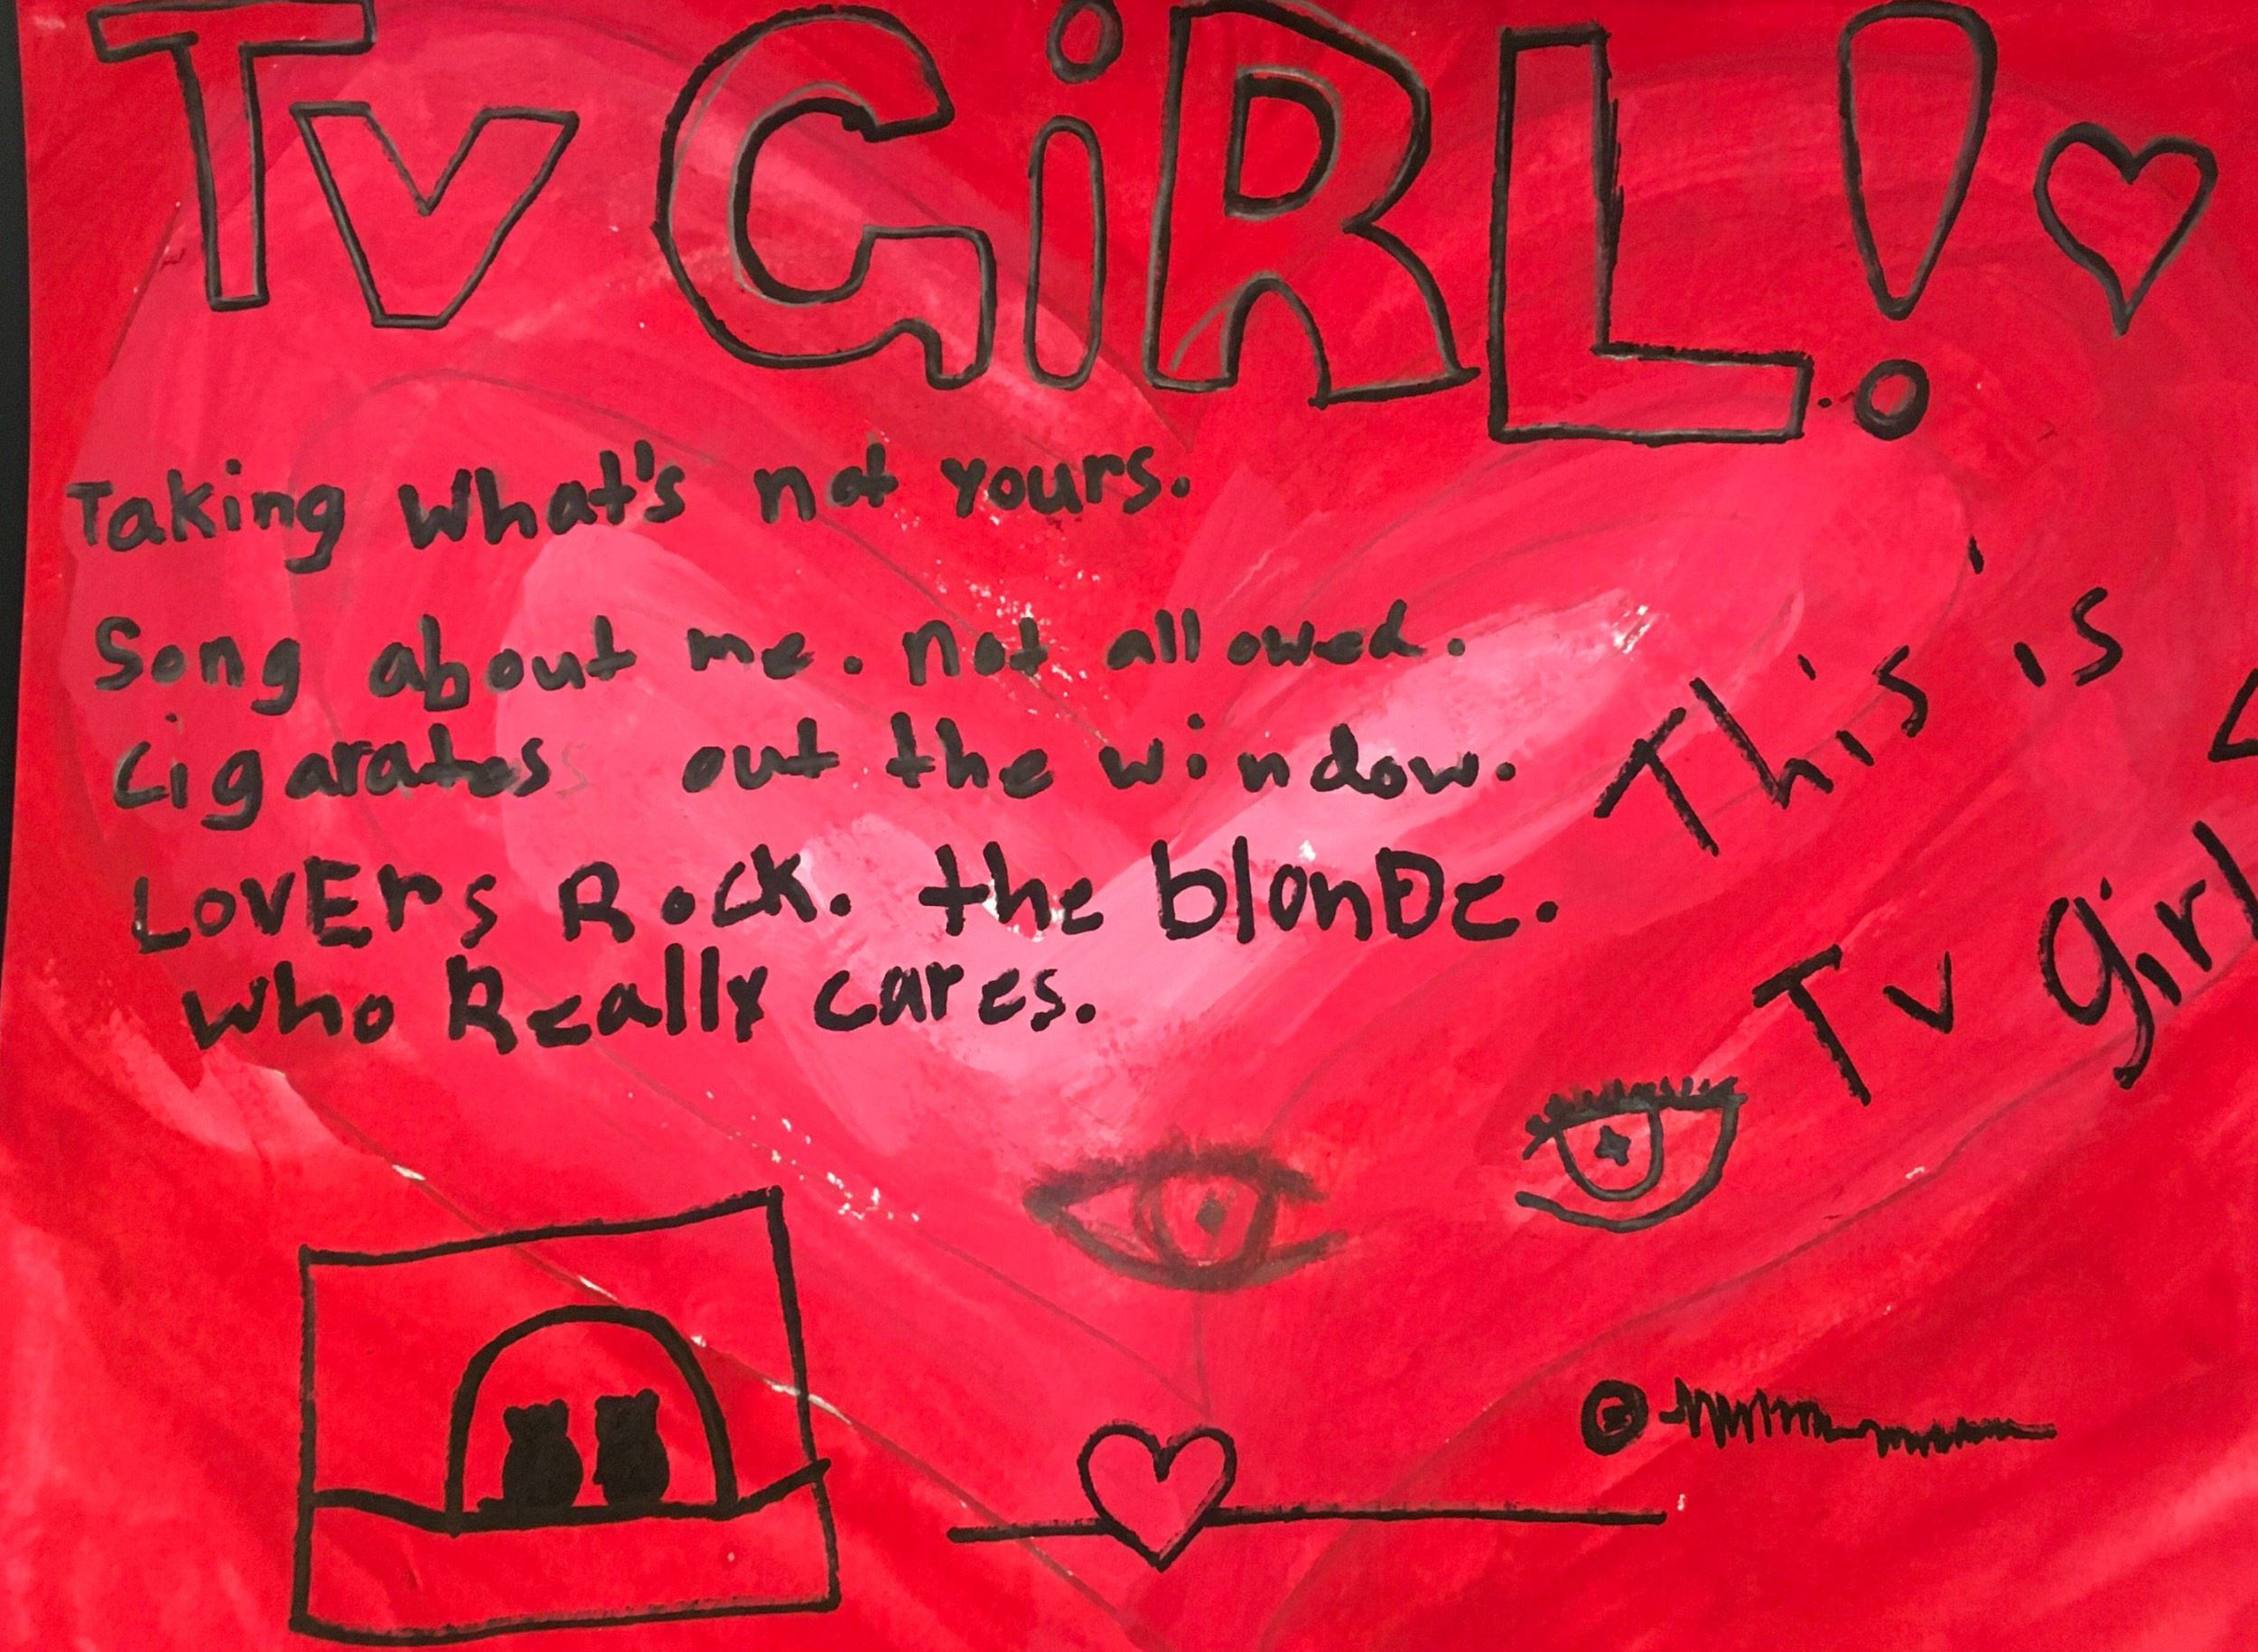 Tv GiRL!
Taking What's not yours.
Song about me. not allowed.
cigarates out the window.
LovErs Rock. the blonDe.
who Really cares.
This is
Tv girl